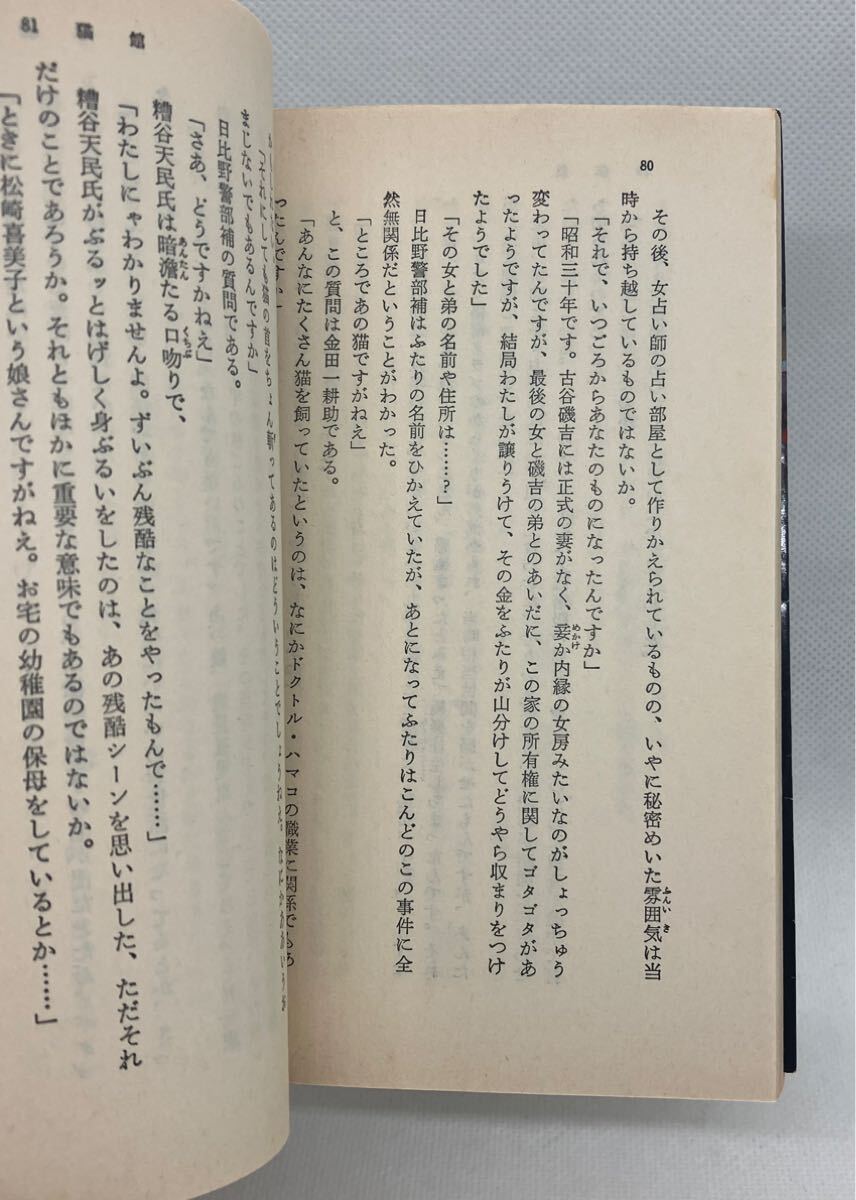 80
その後、女占い師の占い部屋として作りかえられているものの、いやに秘密めいた雰囲気は当
時から持ち越しているものではないか。
「それで、いつごろからあなたのものになったんですか」
「昭和三十年です。古谷磯吉には正式の妻がなく、妾か内縁の女房みたいなのがしょっちゅう
変わってたんですが、最後の女と磯吉の弟とのあいだに、この家の所有権に関してゴタゴタがあ
ったようですが、結局わたしが譲りうけて、その金をふたりが山分けしてどうやら収まりをつけ
たようでした」
「その女と弟の名前や住所は……?」
日比野警部補はふたりの名前をひかえていたが、あとになってふたりはこんどのこの事件に全
然無関係だということがわかった。
「ところであの猫ですがねえ」
と、この質問は金田一耕助である。
「あんなにたくさん猫を飼っていたというのは、なにかドクトル・ハマコの職業に関係でもあ
ったんですか」
81 猫館
「それにしても猫の首をちょん斬ってあるのはどういうことでしょうねえ。
まじないでもあるんですか」
日比野警部補の質問である。
「さあ、どうですかねえ」
糟谷天民氏は暗澹たる口吻りで、
「わたしにゃわかりませんよ。ずいぶん残酷なことをやったもんで……」
糟谷天民氏がぶるッとはげしく身ぶるいをしたのは、あの残酷シーンを思い出した、ただそれ
だけのことであろうか。それともほかに重要な意味でもあるのではないか。
「ときに松崎喜美子という娘さんですがねえ。お宅の幼稚園の保母をしているとか……」